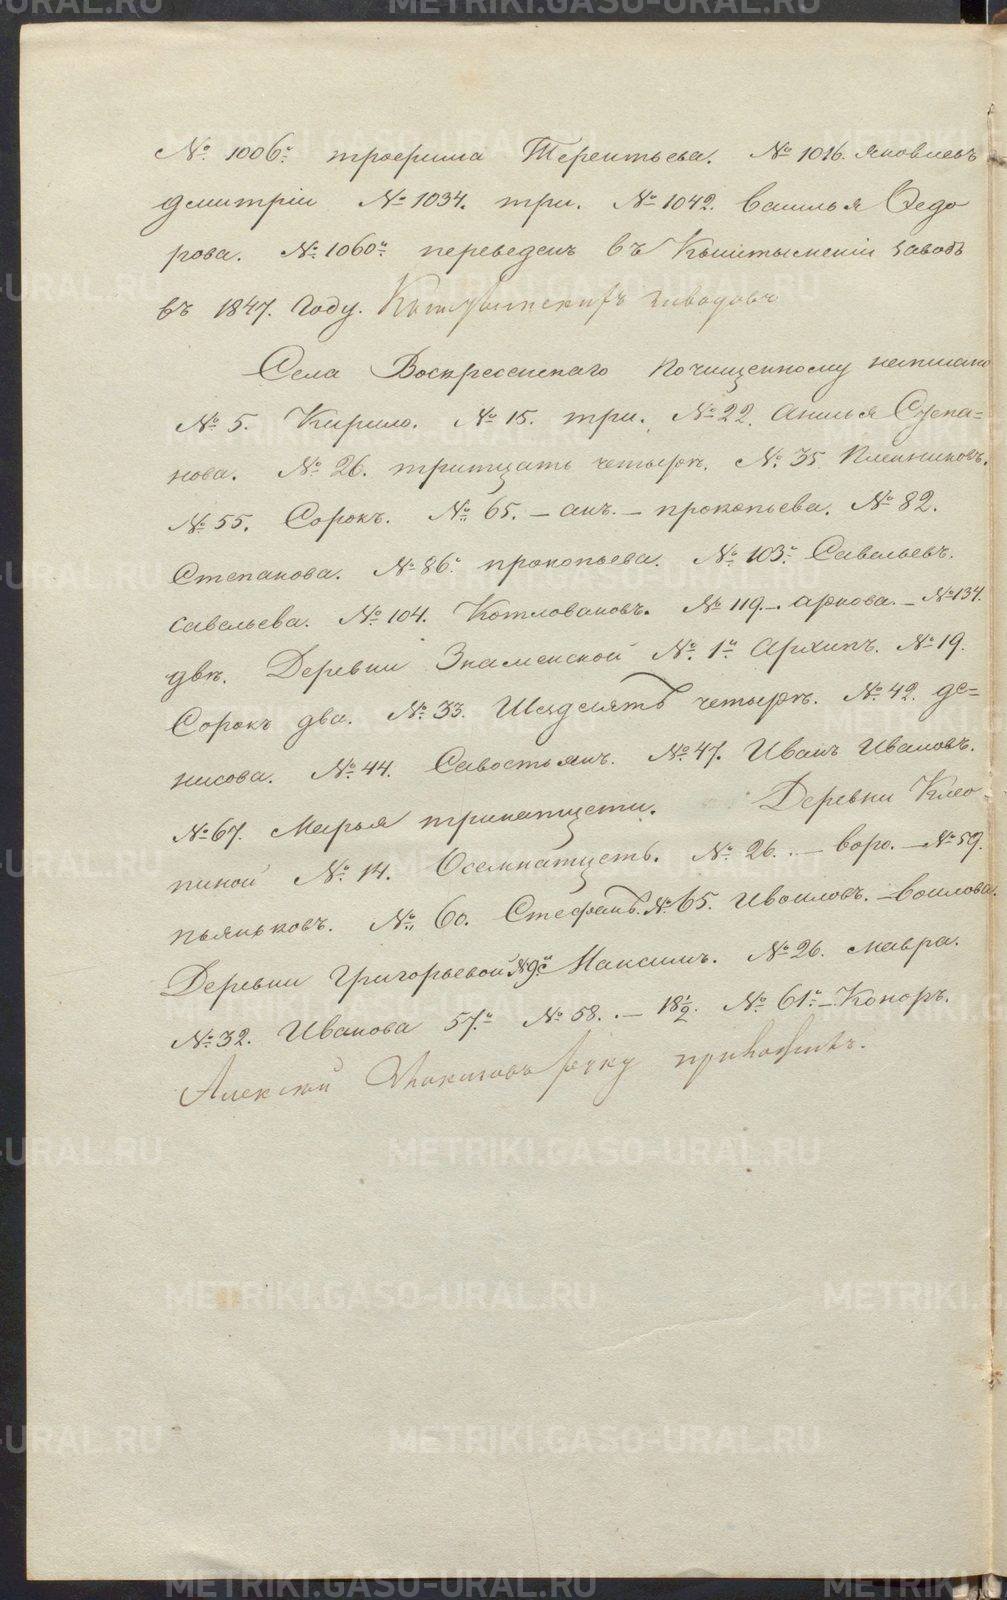 № 1006й трофима Терентьева. № 1016. яковлевъ
дмитрiи № 1034. три. № 1042. василья Ѳедо
рова. № 1060й переведенъ въ Кыштымскiй заводъ
въ 1847. году. Кыштымскихъ заводовъ
Села Воскресенскаго по чищенному написано
№ 5. Кирило. № 15. три. № 22. анилья Степа=
нова. № 26. тритцать четыре. № 35 Плениковъ.
№ 55. Сорокъ. № 65. – анъ. – прокопьева. № 82.
Степанова. № 86й прокопьева. № 103й Савельевъ.
савельева. № 104. Котловановъ. № 119 – аркова. – № 134.
двѣ. Деревни Знаменской № 1й Архипъ. № 19.
Сорокъ два. № 33. Шездесятъ четыре. № 42. де=
нисова. № 44. Савостьянъ. № 47. Иванъ Ивановъ.
№ 67. Марья тринатцети. Деревни Клео
пиной № 14. Осемнатцеть. № 26. – воро. – № 59.
пьяньковъ. № 60. Стефанъ. № 65. Ивоиловъ. – воилова.
Деревни Григорьевой № 9й Максимъ. № 26. мавра.
№ 32. Иванова 57й № 58. – 18½. № 61й – Коноръ.
Алексей руку приложилъ.
METRIKI.GASO-URAL.RU